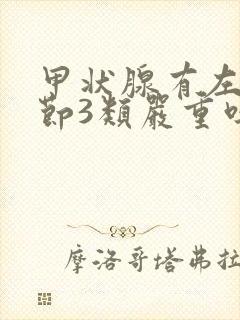 甲状腺有左
节3类严重吗
摩洛哥塔弗拉